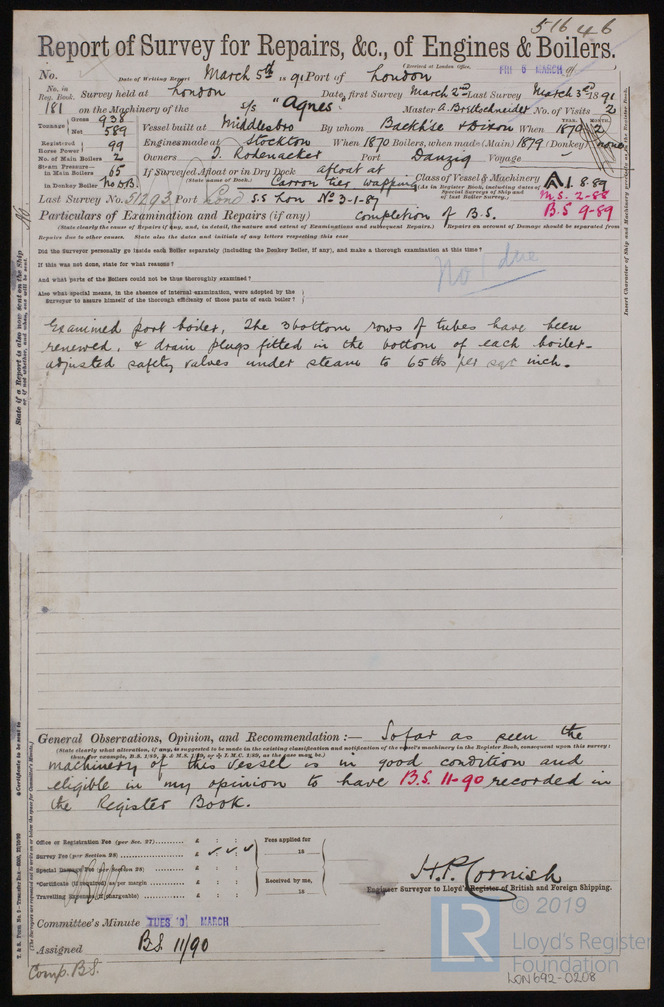 51646
Report of Survey for Repairs, &c., of Engines & Boilers.
(Received at London Office, FRI 6 MARCH 91
No. Date of Writing Report March 5th 18 91 Port of London
No. in Reg. Book. Survey held at London Date, first Survey March 2nd Last Survey March 3rd 1891
181 on the Machinery of the s/s "Agnes" Master A. Brettschneider No. of Visits 2
Tonnage Gross 938 Net 589 Vessel built at Middlesbro By whom Backhse & Dixon When YEAR. 1870 MONTH. 2
Registered Horse Power 99 Engines made at Stockton When 1870 Boilers, when made (Main) 1879 (Donkey) none
No. of Main Boilers 2 Owners Rodenacker Port Danzig Voyage —
Steam Pressure in Main Boilers 65 If Surveyed Afloat or in Dry Dock afloat at
in Donkey Boiler No D.B. (State name of Dock.) Carron tier, wapping
Class of Vessel & Machinery A 1. 8.89
(As in Register Book, including dates of Special Surveys of Ship and of last Boiler Survey.) M.S. 2-88
B.S 9-89
Last Survey No. 51293 Port Lond S.S. Lon No 3-1-87
Particulars of Examination and Repairs (if any) completion of B.S.
(State clearly the cause of Repairs if any, and, in detail, the nature and extent of Examinations and subsequent Repairs.) Repairs on account of Damage should be separated from
Repairs due to other causes. State also the dates and initials of any letters respecting this case
Did the Surveyor personally go inside each Boiler separately (including the Donkey Boiler, if any), and make a thorough examination at this time?
No due
If this was not done, state for what reasons?
And what parts of the Boilers could not be thus thoroughly examined?
Also what special means, in the absence of internal examination, were adopted by the
Surveyor to assure himself of the thorough efficiency of those parts of each boiler?
Examined port boiler, The 3 bottom rows of tubes have been
renewed, & drain plugs fitted in the bottom of each boiler-
adjusted safety valves under steam to 65 lbs per sqr inch.
State if a Report is also now sent on the Ship
or if not, whether, and when, one will be sent
Insert Character of Ship and Machinery precisely as in the Register Book.
General Observations, Opinion, and Recommendation :— So far as seen the
(State clearly what alteration, if any, is suggested to be made in the existing classification and notification of the vessel's machinery in the Register Book, consequent upon this survey;
thus, for example, B.S. 1/89, B. & M.S. 1/89, or L.M.C. 1/89, as the case may be.)
machinery of this vessel is in good condition and
eligible in my opinion to have B.S. 11-90 recorded in
the Register Book.
Office or Registration Fee (per Sec. 27) £ : :
Survey Fee (per Section 28) £ : :
Special Damage Fee (per Section 28) £ : :
*Certificate (if required) as per margin £ : :
Travelling Expenses (if chargeable) £ : :
Fees applied for
18
Received by me,
18
H.P. Cornish
Engineer Surveyor to Lloyd's Register of British and Foreign Shipping.
Committee's Minute TUES 10 MARCH
Assigned B.S. 11/90
Comp. B.S.
*Certificate to be sent to
(The Surveyors are requested not to write on or below the space for Committee's Minute.)
© 2019
LR
Lloyd's Register
Foundation
LON692-0208